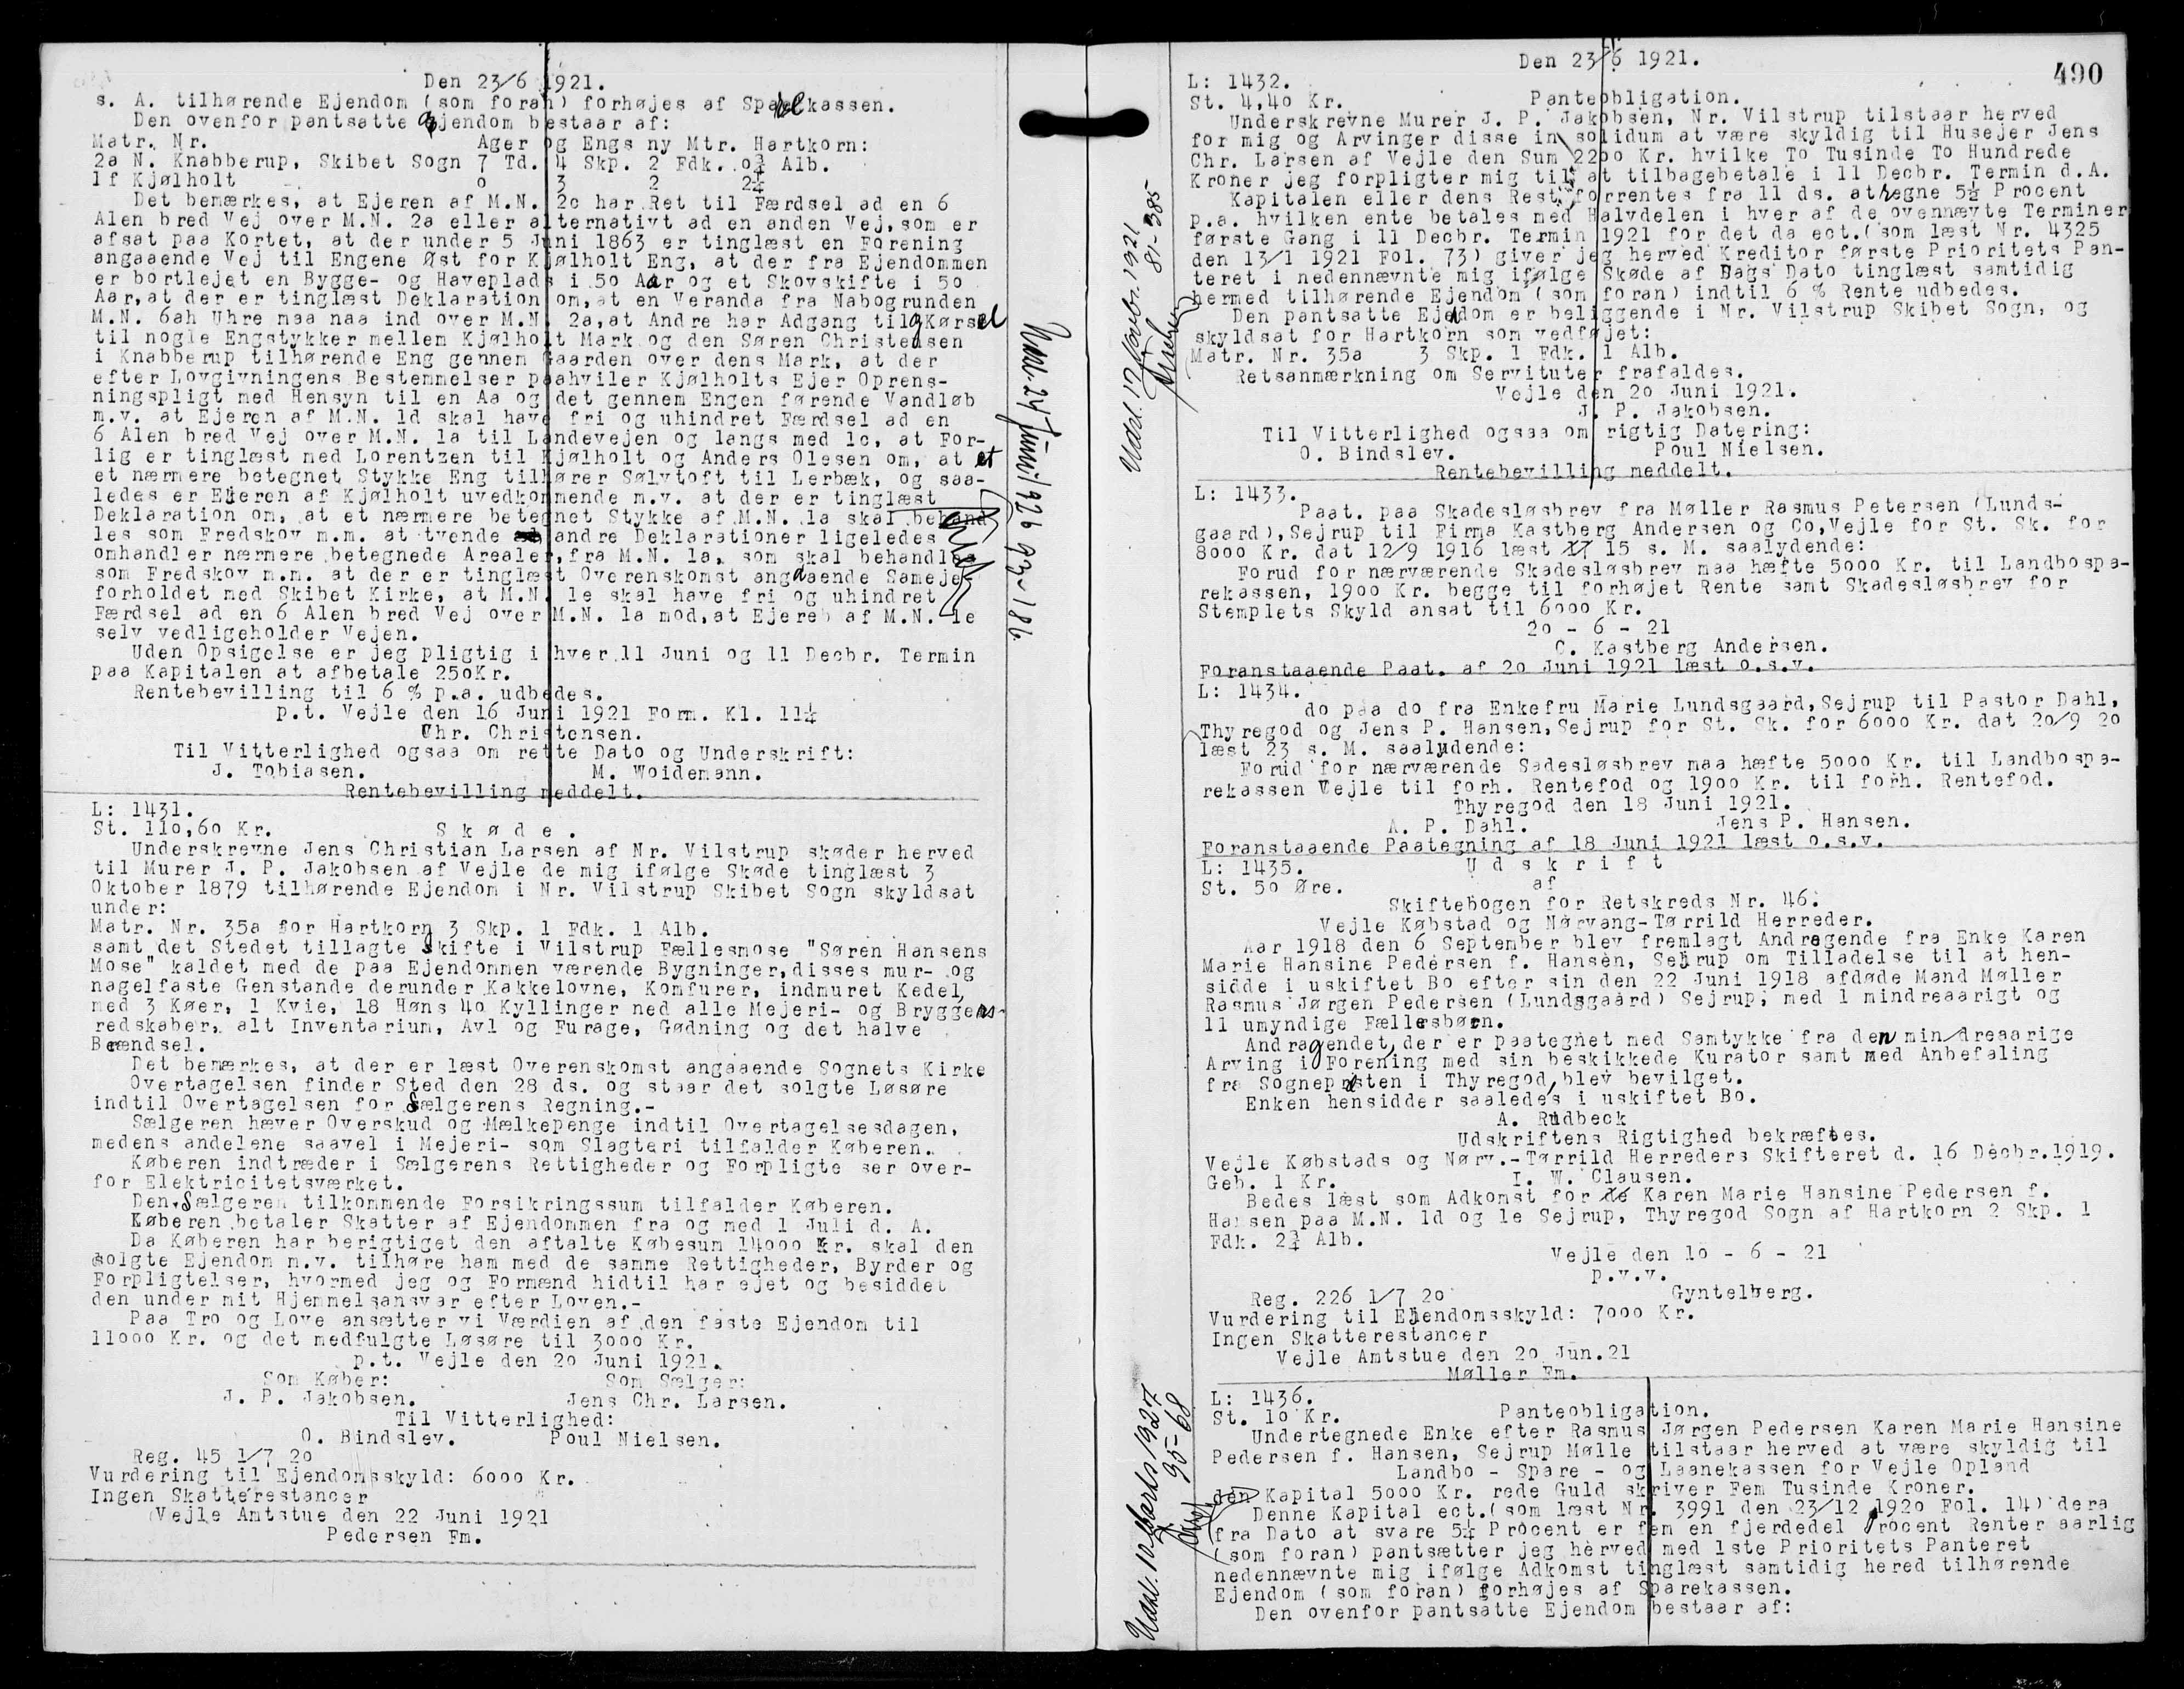 Den 23/6 1921.
s. A. tilhørende Ejendom (som foran) forhøjes af Sparekassen.
Den ovenfor pantsatte Ejendom bestaar af:
Matr. Nr. Ager og Engs ny Mtr. Hartkorn:
2a N. Knabberup, Skibet Sogn 7 Td. 4 Skp. 2 Fdk. 0¾ Alb.
1f Kjølholt 0 3 2 2¼
Det bemærkes, at Ejeren af M.N. 2c har Ret til Færdsel ad en 6
Alen bred Vej over M.N. 2a eller alternativt ad en anden Vej, som er
afsat paa Kortet, at der under 5 Juni 1863 er tinglæst en Forening
angaaende Vej til Engene Øst for Kjølholt Eng, at der fra Ejendommen
er bortlejet en Bygge- og Haveplads i 50 Aar og et Skovskifte i 50
Aar, at der er tinglæst Deklaration om, at en Veranda fra Nabogrunden
M.N. 6ah Uhre maa naa ind over M.N. 2a, at Andre har Adgang til Kørsel
til nogle Engstykker mellem Kjølholt Mark og den Søren Christensen
i Knabberup tilhørende Eng gennem Gaarden over dens Mark, at der
efter Lovgivningens Bestemmelser paahviler Kjølholts Ejer Oprens-
ningspligt med Hensyn til en Aa og det gennem Engen førende Vandløb
m.v. at Ejeren af M.N. 1d skal have fri og uhindret Færdsel ad en
6 Alen bred Vej over M.N. 1a til Landevejen og langs med 1c, at For-
lig er tinglæst med Lorentzen til Kjølholt og Anders Olesen om, at et
et nærmere betegnet Stykke Eng tilhører Sølvtoft til Lerbæk, og saa-
ledes er Ejeren af Kjølholt uvedkommende m.v. at der er tinglæst
Deklaration om, at et nærmere betegnet Stykke af M.N. 1a skal behand
les som Fredskov m.m. at tvende andre Deklarationer ligeledes
omhandler nærmere betegnede Arealer, fra M.N. 1a, som skal behandles
som Fredskov m.m. at der er tinglæst Overenskomst angaaende Sameje
forholdet med Skibet Kirke, at M.N. 1e skal have fri og uhindret
Færdsel ad en 6 Alen bred Vej over M.N. 1a mod, at Ejeren af M.N. 1e
selv vedligeholder Vejen.
Uden Opsigelse er jeg pligtig i hver 11 Juni og 11 Decbr. Termin
paa Kapitalen at afbetale 250Kr.
Rentebevilling til 6 % p.a. udbedes.
p.t. Vejle den 16 Juni 1921 Form. Kl. 11¼
Chr. Christensen.
Til Vitterlighed ogsaa om rette Dato og Underskrift:
J. Tobiasen. M. Woidemann.
Rentebevilling meddelt.
L: 1431.
St. 110,60 Kr. Skøde.
Underskrevne Jens Christian Larsen af Nr. Vilstrup skøder herved
til Murer J. P. Jakobsen af Vejle de mig ifølge Skøde tinglæst 3
Oktober 1879 tilhørende Ejendom i Nr. Vilstrup Skibet Sogn skyldsat
under:
Matr. Nr. 35a for Hartkorn 3 Skp. 1 Fdk. 1 Alb.
samt det Stedet tillagte Skifte i Vilstrup Fællesmose "Søren Hansens
Mose" kaldet med de paa Ejendommen værende Bygninger, disses mur- og
nagelfaste Genstande derunder Kakkelovne, Komfurer, indmuret Kedel,
med 3 Køer, 1 Kvie, 18 Høns 40 Kyllinger ned alle Mejeri- og Bryggers-
redskaber. alt Inventarium, Avl og Furage, Gødning og det halve
Brændsel.
Det bemærkes, at der er læst Overenskomst angaaende Sognets Kirke
Overtagelsen finder Sted den 28 ds. og staar det solgte Løsøre
indtil Overtagelsen for Sælgerens Regning.-
Sælgeren hæver Overskud og Mælkepenge indtil Overtagelsesdagen,
medens andelene saavel i Mejeri- som Slagteri tilfalder Køberen..
Køberen indtræder i Sælgerens Rettigheder og Forpligte ser over-
for Elektricitetsværket.
Den Sælgeren tilkommende Forsikringssum tilfalder Køberen.
Køberen betaler Skatter af Ejendommen fra og med 1 Juli d. A.
Da Køberen har berigtiget den aftalte Købesum 14000 Kr. skal den
solgte Ejendom m.v. tilhøre ham med de samme Rettigheder, Byrder og
Forpligtelser, hvormed jeg og Formænd hidtil har ejet og besiddet
den under mit Hjemmelsansvar efter Loven.-
Paa Tro og Love ansætter vi Værdien af den faste Ejendom til
11000 Kr. og det medfulgte Løsøre til 3000 Kr.
p.t. Vejle den 20 Juni 1921.
Som Køber: Som Sælger:
J. P. Jakobsen. Jens Chr. Larsen.
Til Vitterlighed:
O. Bindslev. Poul Nielsen.
Reg. 45 1/7 20
Vurdering til Ejendomsskyld: 6000 Kr.
Ingen Skatterestancer
Vejle Amtstue den 22 Juni 1921
Pedersen Fm.
24 Juni 1926 93-186
Den 23/6 1921.
490
L: 1432.
St. 4,40 Kr. Panteobligation.
Underskrevne Murer J. P. Jakobsen, Nr. Vilstrup tilstaar herved
for mig og Arvinger disse in solidum at være skyldig til Husejer Jens
Chr. Larsen af Vejle den Sum 2200 Kr. hvilke To Tusinde To Hundrede
Kroner jeg forpligter mig til at tilbagebetale i 11 Decbr. Termin d.A.
Kapitalen eller dens Rest forrentes fra 11 ds. at regne 5½ Procent
p.a. hvilken ente betales med Halvdelen i hver af de ovennævte Terminer
første Gang i 11 Decbr. Termin 1921 for det da ect.(som læst Nr. 4325
den 13/1 1921 Fol. 73) giver jeg herved Kreditor første Prioritets Pan-
teret i nedennævnte mig ifølge Skøde af Dags Dato tinglæst samtidig
hermed tilhørende Ejendom (som foran) indtil 6 % Rente udbedes.
Den pantsatte Ejendom er beliggende i Nr. Vilstrup Skibet Sogn, og
skyldsat for Hartkorn som vedføjet:
Matr. Nr. 35a 3 Skp. 1 Fdk. 1 Alb.
Retsanmærkning om Servituter frafaldes.
Vejle den 20 Juni 1921.
J. P. Jakobsen.
Til Vitterlighed ogsaa om rigtig Datering:
O. Bindslev. Poul Nielsen.
Rentebevilling meddelt.
L: 1433.
Paat. paa Skadesløsbrev fra Møller Rasmus Petersen (Lunds-
gaard), Sejrup til Firma Kastberg Andersen og Co, Vejle for St. Sk. for
8000 Kr. dat 12/9 1916 læst 15 s. M. saalydende:
Forud for nærværende Skadesløsbrev maa hæfte 5000 Kr. til Landbospa-
rekassen, 1900 Kr. begge til forhøjet Rente samt Skadesløsbrev for
Stemplets Skyld ansat til 6000 Kr.
20 - 6 - 21
C. Kastberg Andersen.
Foranstaaende Paat. af 20 Juni 1921 læst o.s.v.
L: 1434.
do paa do fra Enkefru Marie Lundsgaard, Sejrup til Pastor Dahl,
Thyregod og Jens P. Hansen, Sejrup for St. Sk. for 6000 Kr. dat 20/9 20
læst 23 s. M. saalydende:
Forud for nærværende Sadesløsbrev maa hæfte 5000 Kr. til Landbospa-
rekassen Vejle til forh. Rentefod og 1900 Kr. til forh. Rentefod.
Thyregod den 18 Juni 1921.
A. P. Dahl. Jens P. Hansen.
Foranstaaende Paategning af 18 Juni 1921 læst o.s.v.
L: 1435. Udskrift
St. 50 Øre. af
Skiftebogen for Retskreds Nr. 46.
Vejle Købstad og Nørvang-Tørrild Herreder.
Aar 1918 den 6 September blev fremlagt Andragende fra Enke Karen
Marie Hansine Pedersen f. Hansen, Sejrup om Tilladelse til at hen-
sidde i uskiftet Bo efter sin den 22 Juni 1918 afdøde Mand Møller
Rasmus Jørgen Pedersen (Lundsgaard) Sejrup, med 1 mindreaarigt og
11 umyndige Fællesbørn.
Andragendet, der er paategnet med Samtykke fra den mindreaarige
Arving i Forening med sin beskikkede Kurator samt med Anbefaling
fra Sognepræsten i Thyregod, blev bevilget.
Enken hensidder saaledes i uskiftet Bo.
A. Rudbeck
Udskriftens Rigtighed bekræftes.
Vejle Købstads og Nørv.-Tørrild Herreders Skifteret d. 16 Decbr.1919.
Geb. 1 Kr. I. W. Clausen.
Bedes læst som Adkomst for Karen Marie Hansine Pedersen f.
Hansen paa M.N. 1d og 1e Sejrup, Thyregod Sogn af Hartkorn 2 Skp. 1
Fdk. 2¾ Alb.
Vejle den 10 - 6 - 21
p.v.v.
Reg. 226 1/7 20 Gyntelberg.
Vurdering til Ejendomsskyld: 7000 Kr.
Ingen Skatterestancer
Vejle Amtstue den 20 Jun.21
Møller Fm.
L: 1436.
St. 10 Kr. Panteobligation.
Undertegnede Enke efter Rasmus Jørgen Pedersen Karen Marie Hansine
Pedersen f. Hansen, Sejrup Mølle tilstaar herved at være skyldig til
Landbo - Spare - og Laanekassen for Vejle Opland
den Kapital 5000 Kr. rede Guld skriver Fem Tusinde Kroner.
Denne Kapital ect.(som læst Nr. 3991 den 23/12 1920 Fol. 14) dera
fra Dato at svare 5¼ Procent er fem en fjerdedel Procent Renter aarlig
(som foran) pantsætter jeg herved med 1ste Prioritets Panteret
nedennævnte mig ifølge Adkomst tinglæst samtidig hered tilhørende
Ejendom (som foran) forhøjes af Sparekassen.
Den ovenfor pantsatte Ejendom bestaar af:
Udsl. 17 1921
81-385
Udsl. 10 Marts 1927
95-68